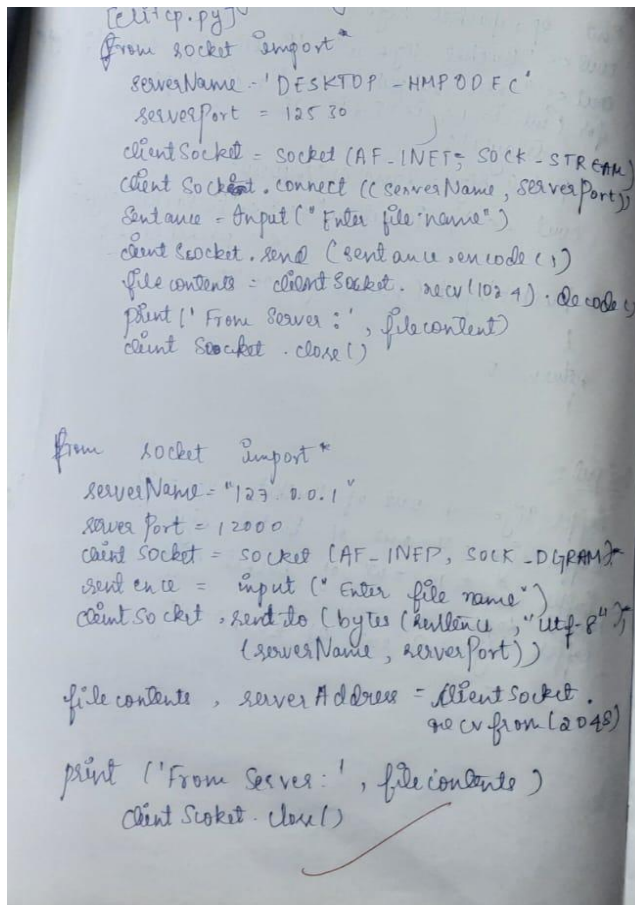 [clitcp.py]
from socket import*
serverName = 'DESKTOP-HMPODFC'
serverPort = 12530
clientSocket = socket (AF-INET, SOCK-STREAM)
client Socket.connect ((serverName, serverPort))
Sentance = Input (" Enter file name")
client Scocket.send (sentance.encode())
file contents = clientSocket. recv(1024).decode()
print (' From Server:', filecontent)
client Soocket.close()
from socket import*
serverName = "127.0.0.1"
server Port = 12000
client Socket = socket (AF-INEP, SOCK-DGRAM)
sent ence = input (" Enter file name")
clientSocket.sendto (bytes (sentence, "utf-8"),
(serverName, serverPort))
file contents, serverAddress = clientSocket.
recvfrom (2048)
print ('From Server:', filecontents)
client Scoket.close()